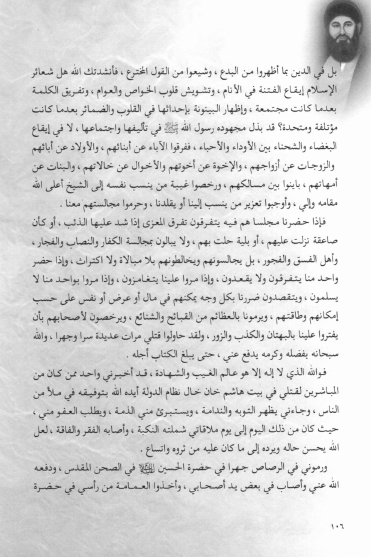 بل في الدين بما أظهروا من البدع ، وشيعوا من القول المخترع ، فأنشدتك الله هل شعائر
الإسلام إيقاع الفتنة في الأنام ، وتشويش قلوب الخواص والعوام ، وتفريق الكلمة
بعدما كانت مجتمعة ، وإظهار البينونة بإحداثها في القلوب والضمائر بعدما كانت
مؤتلفة ومتحدة؟ قد بذل مجهوده رسول الله ﷺ في تأليفها واجتماعها ، لا في إيقاع
البغضاء والشحناء بين الأوداء والأحباء ، ففرقوا الآباء عن أبنائهم ، والأولاد عن آبائهم
والزوجات عن أزواجهم ، والإخوة عن أخوتهم والأخوال عن خالاتهم ، والبنات عن
أمهاتهم ، باينوا بين مسالكهم ، ورخصوا غيبة من ينسب نفسه إلى الشيخ أعلى الله
مقامه وإلي ، وأوجبوا تعزير من ينسب إلينا أو يقلدنا ، وحرموا مجالستهم معنا .
فإذا حضرنا مجلسا هم فيه يتفرقون تفرق المعزى إذا شد عليها الذئب ، أو كأن
صاعقة نزلت عليهم ، أو بلية حلت بهم ، ولا يبالون بمجالسة الكفار والنصاب والفجار ،
وأهل الفسق والفجور ، بل يجالسونهم ويخالطونهم بلا مبالاة ولا اكتراث ، وإذا حضر
واحد منا يتفرقون ولا يقعدون ، وإذا مروا علينا يتغامزون ، وإذا مروا بواحد منا لا
يسلمون ، ويتقصدون ضررنا بكل وجه يمكنهم في مال أو عرض أو نفس على حسب
إمكانهم وطاقتهم ، ويرمونا بالعظائم من القبائح والشنائع ، ويرخصون لأصحابهم بأن
يفتروا علينا بالبهتان والكذب والزور ، ولقد حاولوا قتلي مرات عديدة سرا وجهرا ، والله
سبحانه بفضله وكرمه يدفع عني ، حتى يبلغ الكتاب أجله .
فوالله الذي لا إله إلا هو عالم الغيب والشهادة ، قد أخبرني واحد عن كان من
المباشرين لقتلي في بيت هاشم خان خال نظام الدولة أيده الله بتوفيقه في ملأ من
الناس ، وجاءني يظهر التوبه والندامة ، ويستبرئ مني الذمة ، ويطلب العفو مني ،
حيث كان من ذلك اليوم إلى يوم ملاقاتي شملته النكبة ، وأصابه الفقر والفاقة ، لعل
الله يحسن حاله ويرده إلى ما كان عليه من ثروه واتساع .
ورموني في الرصاص جهرا في حضرة الحسين في الصحن المقدس ، ودفعه
الله عني وأصاب في بعض يد أصحابي ، وأخذوا العمامة من رأسي في حضرة
١٠٦